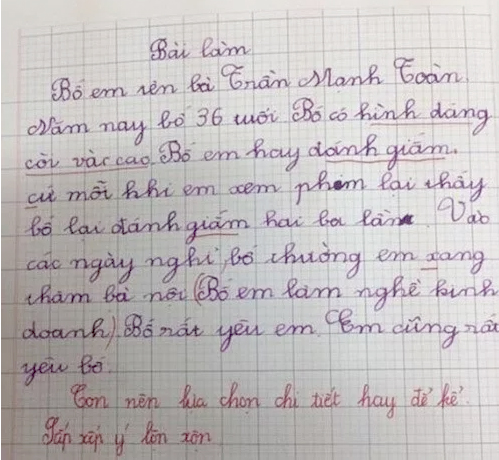 Bài làm
Bố em tên bà Trần Mạnh Toàn.
Năm nay bố 36 tuổi. Bố có hình dáng
còi vàc cao. Bố em hay dánh giấm.
cứ mỗi khi em xem phim lại thấy
bố lại đánh giấm hai ba lần. Vào
các ngày nghỉ bố thường em xang
thăm bà nội (Bố em làm nghề kinh
doanh). Bố rất yêu em. Em cũng rất
yêu bố.
Con nên lựa chọn chi tiết hay để kể.
Sắp xếp ý lộn xộn